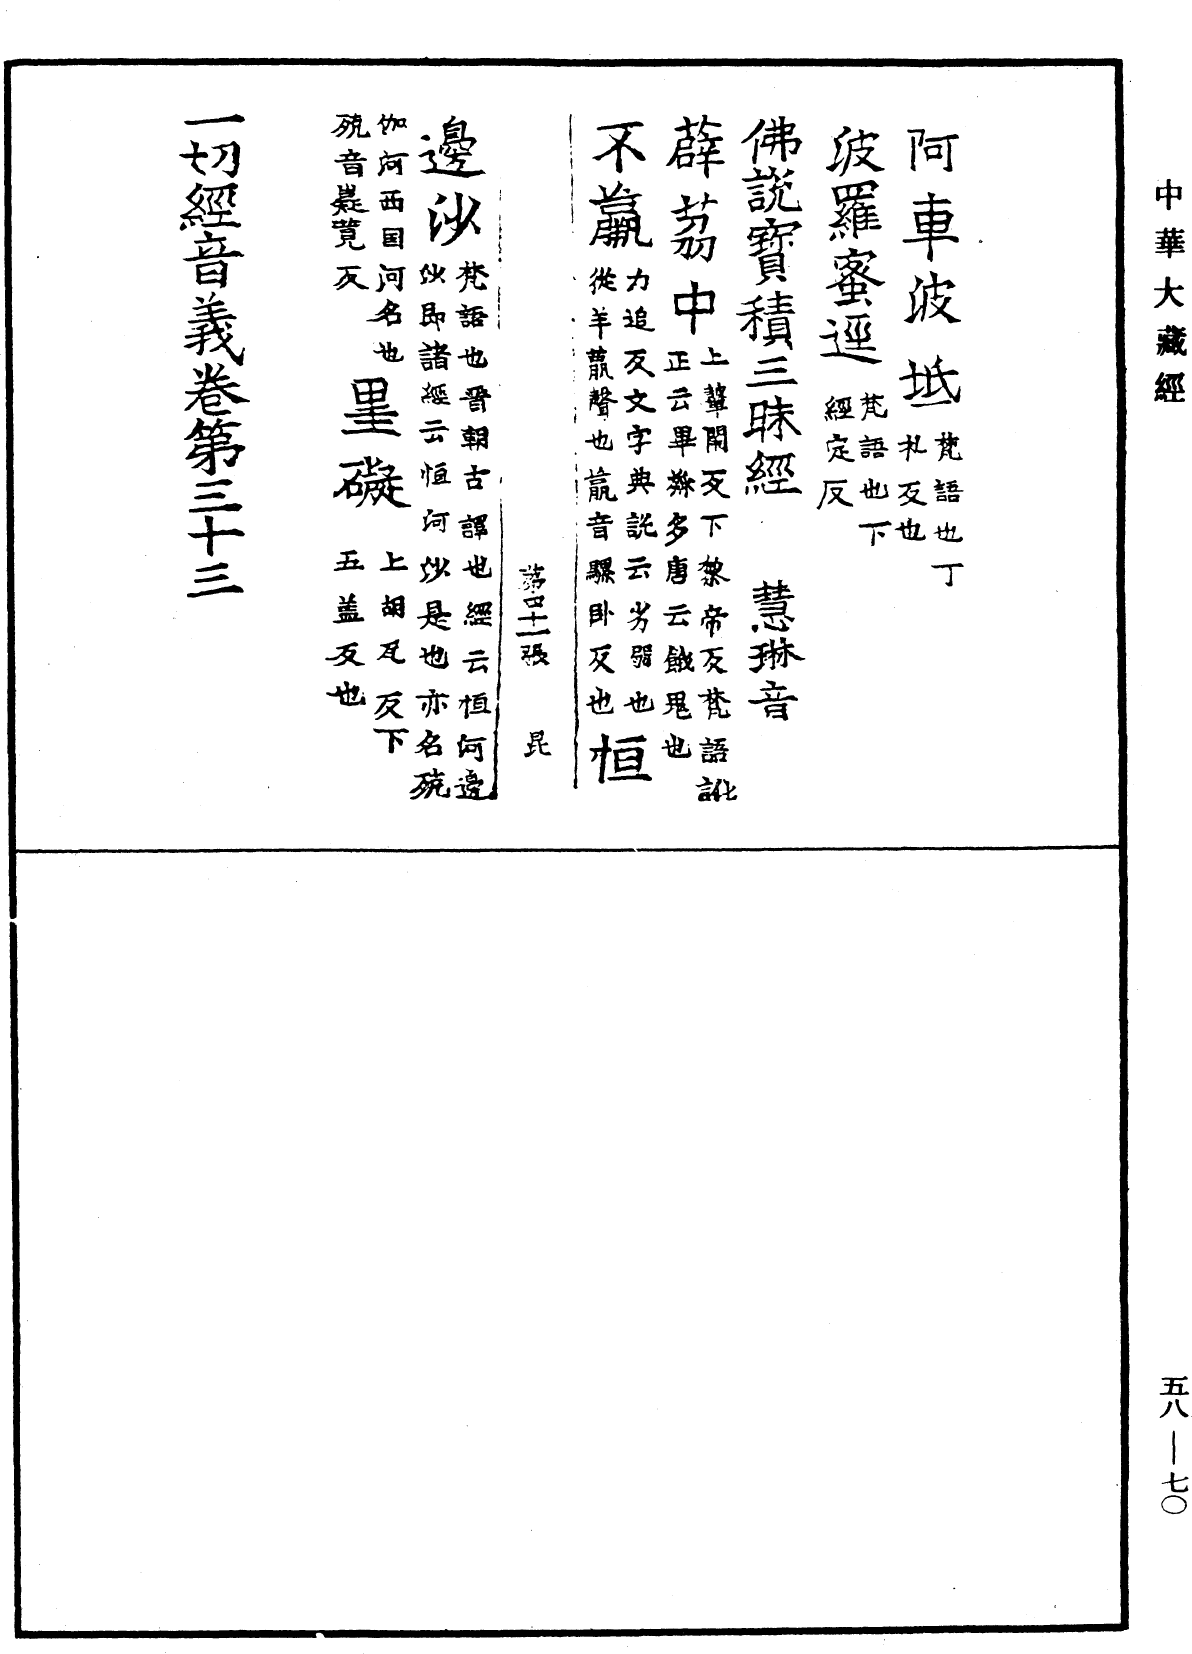 中華大藏經
阿車波坻 梵語也丁礼反也
波羅蜜逕 梵語也下經定反
佛說寶積三昧經 慧琳音
薜荔中 上鼙閇反下黎帝反梵語訛正云畢隸多唐云餓鬼也
不羸 力追反文字典說云劣弱也從羊𣎆聲也𣎆音騾卧反也 恒
第四十一張 昆
邊沙 梵語也晉朝古譯也經云恒河邊沙即諸經云恒河沙是也亦名殑
伽河西国河名也殑音嶷競反 罣礙 上胡瓦反下五盖反也
一切經音義卷第三十三
五八—七〇